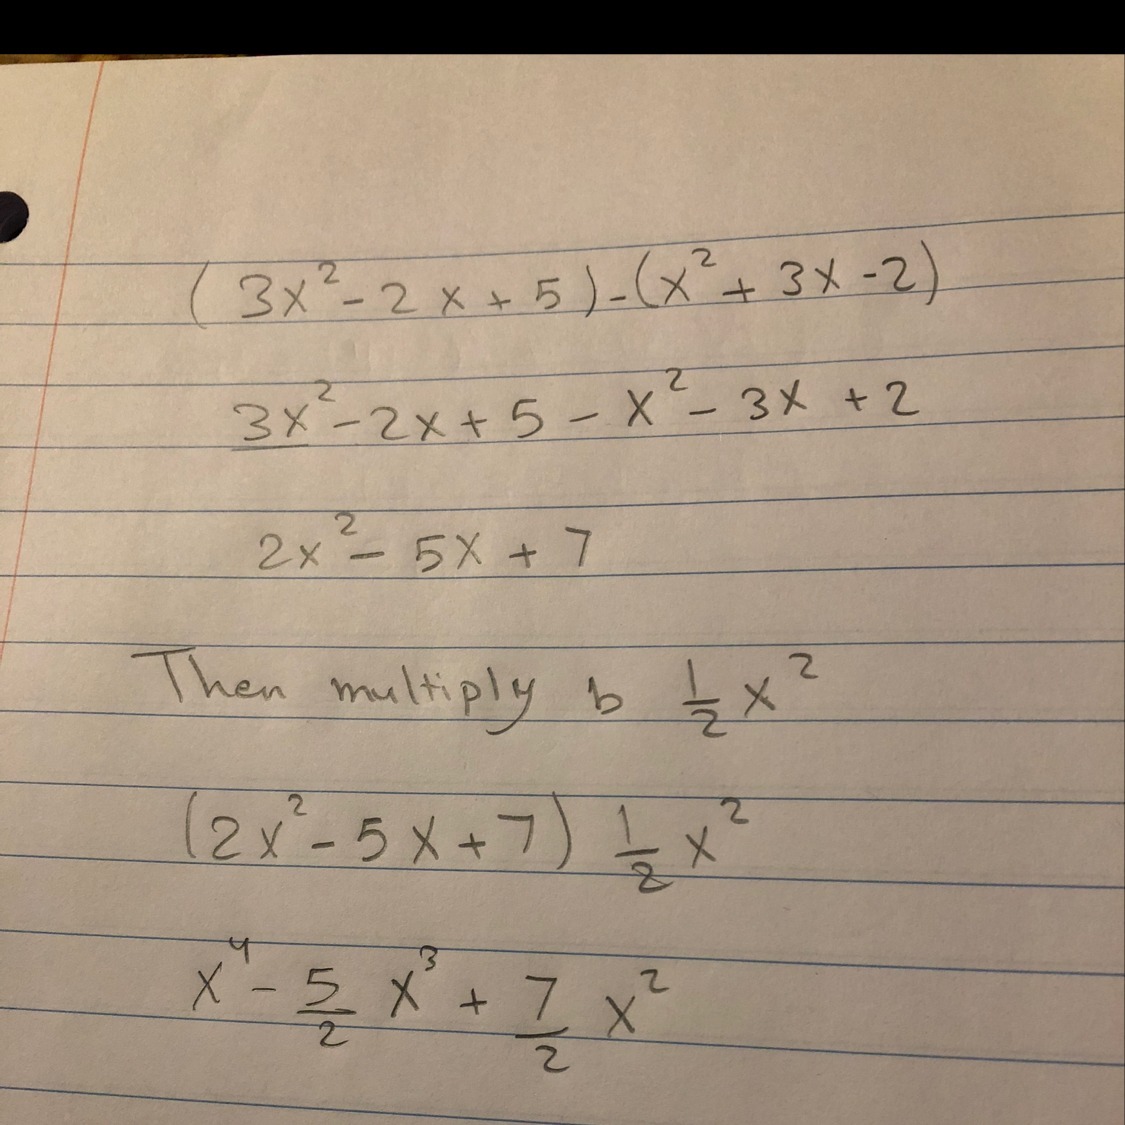 (3x² - 2x + 5) - (x² + 3x - 2)
3x² - 2x + 5 - x² - 3x + 2
2x² - 5x + 7
Then multiply b 1/2 x²
(2x² - 5x + 7) 1/2 x²
x⁴ - 5/2 x³ + 7/2 x²